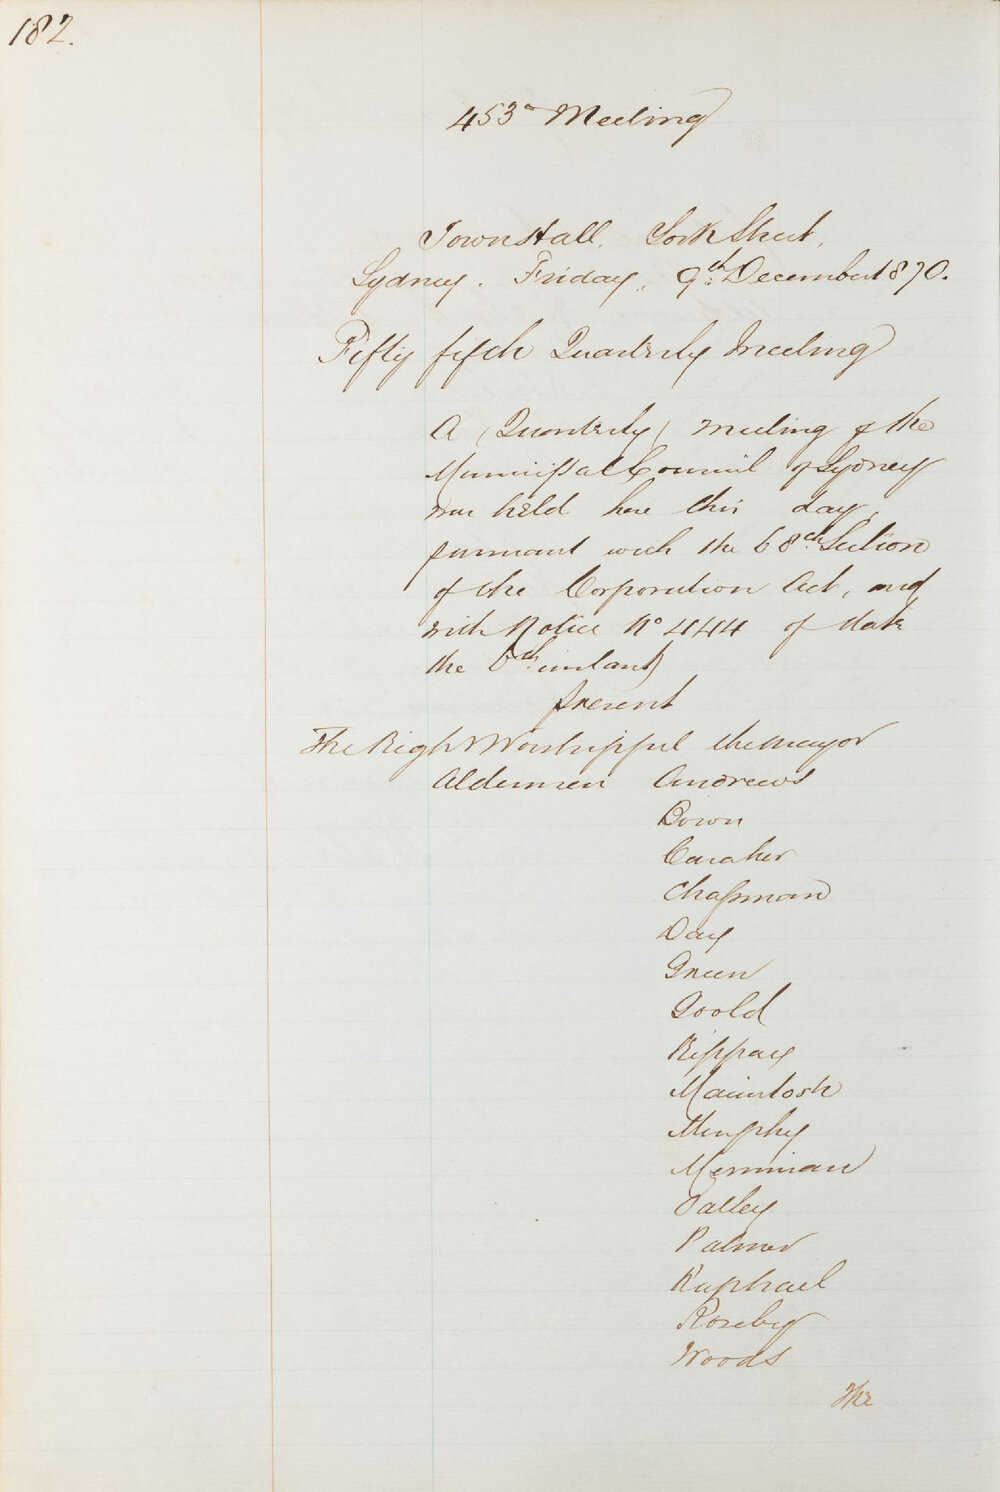 182.
453d Meeting
Town Hall, York Street,
Sydney. Friday, 9th December 1870.
Fifty fifth Quarterly Meeting
A (Quarterly) Meeting of the
Municipal Council of Sydney
was held here this day,
pursuant with the 68th Section
of the Corporation Act, and
with Notice No 444 of date
the 6th instant
present
The Right Worshipful the Mayor
Aldermen Andrews
Bown
Caraher
Chapman
Day
Green
Goold
Kippax
Macintosh
Murphy
Merriman
Oatley
Palmer
Raphael
Roseby
Woods
The